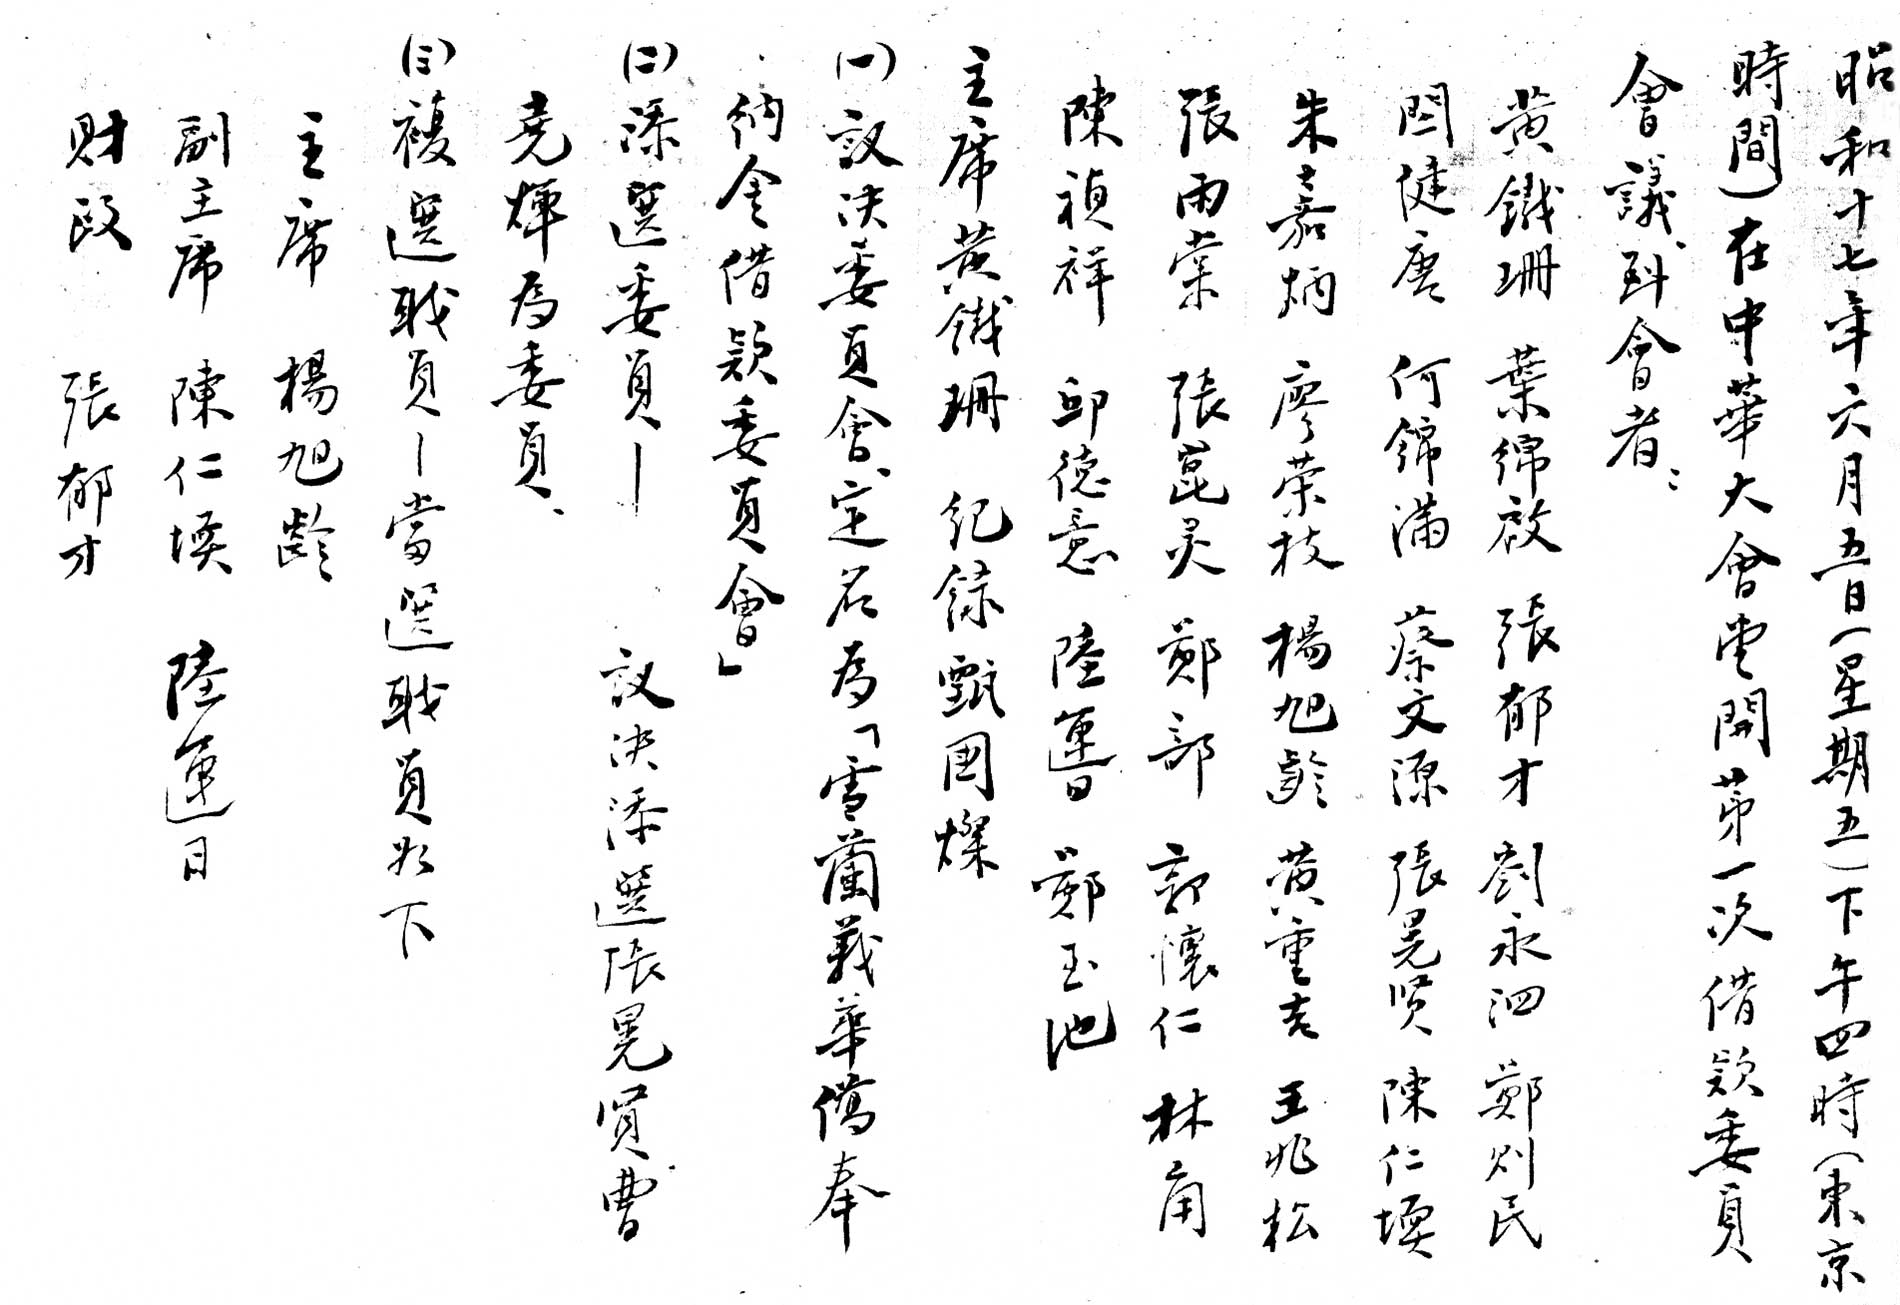 昭和十七年六月五日(星期五)下午四時(東京
時間)在中華大會堂開第一次借欵委員
會議、到會者:
黄鐵珊 葉綿啟 張郁才 劉永泗 鄭則民
閻健唐 何錦滿 蔡文源 張晃贤 陳仁堧
朱嘉炳 廖荣枝 楊旭齡 黄重吉 王兆松
張雨棠 張崑灵 鄭部 郭懷仁 林角
陳禎祥 邱德意 陸運日 鄭玉池
主席黄鐵珊 紀錄甄國燦
(一)议决委員會、定名為「雪蘭莪華僑奉
納金借欵委員會」
(二)添選委員— 议决添選張晃賢曹
堯輝為委員、
(三)複選职員—當選职員如下
主席 楊旭齡
副主席 陳仁堧 陸運日
財政 張郁才